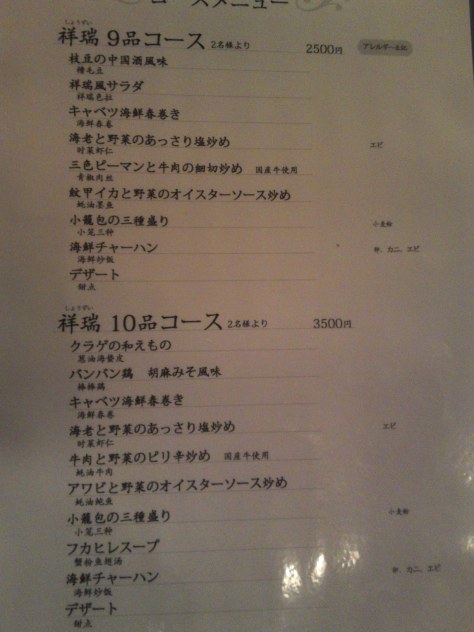 コースメニュー
しょうずい
祥瑞 9品コース 2名様より 2500円 アレルギー表記
枝豆の中国酒風味
糟毛豆
祥瑞風サラダ
祥瑞色拉
キャベツ海鮮春巻き
海鮮春巻
海老と野菜のあっさり塩炒め エビ
时菜虾仁
三色ピーマンと牛肉の細切炒め 国産牛使用
青椒肉丝
紋甲イカと野菜のオイスターソース炒め
蚝油墨鱼
小籠包の三種盛り 小麦粉
小笼三种
海鮮チャーハン 卵、カニ、エビ
海鮮炒飯
デザート
甜点
しょうずい
祥瑞 10品コース 2名様より 3500円
クラゲの和えもの
葱油海蜇皮
バンバン鶏 胡麻みそ風味
棒棒鶏
キャベツ海鮮春巻き
海鮮春巻
海老と野菜のあっさり塩炒め エビ
时菜虾仁
牛肉と野菜のピリ辛炒め 国産牛使用
蚝油牛肉
アワビと野菜のオイスターソース炒め
蚝油鲍鱼
小籠包の三種盛り 小麦粉
小笼三种
フカヒレスープ
蟹粉魚翅汤
海鮮チャーハン 卵、カニ、エビ
海鮮炒飯
デザート
甜点